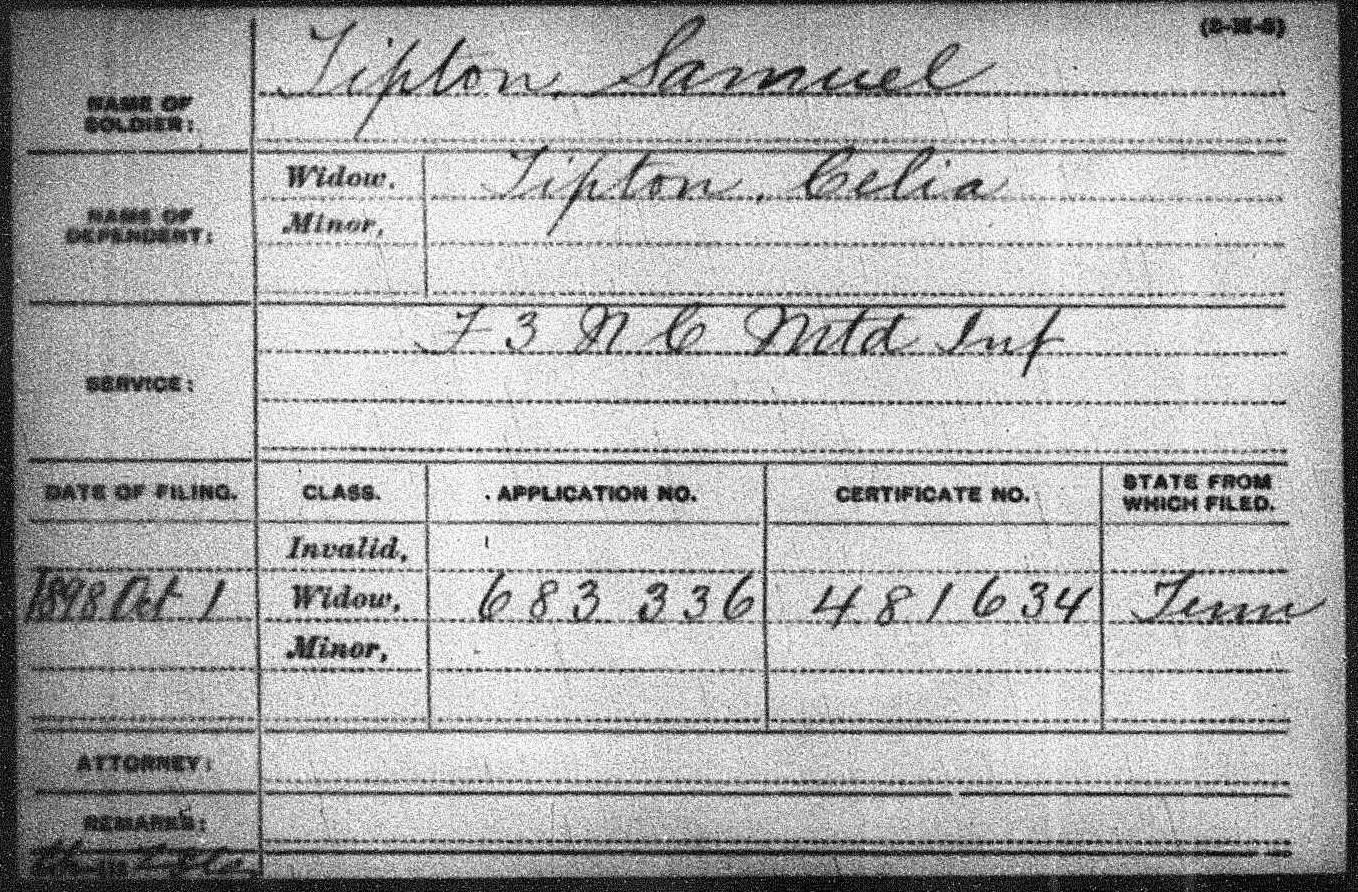 NAME OF SOLDIER: Tipton, Samuel
NAME OF DEPENDENT:
Widow, Tipton, Celia
Minor,
SERVICE: F 3 N C Mtd Inf
DATE OF FILING. CLASS. APPLICATION NO. CERTIFICATE NO. STATE FROM WHICH FILED.
Invalid,
1898 Oct 1 Widow, 683 336 481634 Tenn
Minor,
ATTORNEY:
REMARKS: